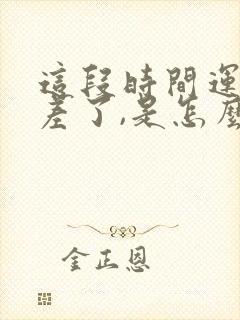 這段時間運
差了,是怎麼
金正恩